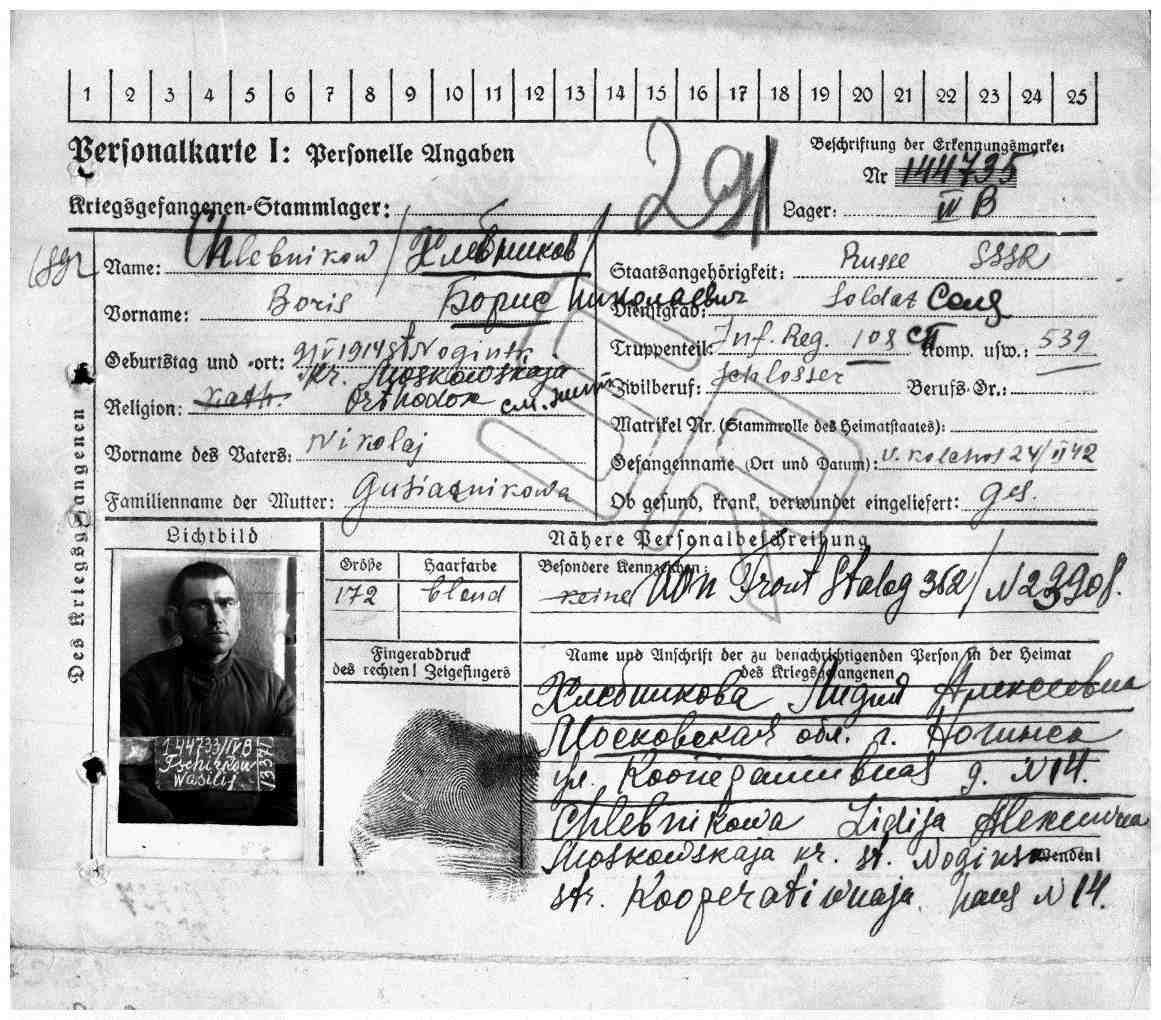 1 2 3 4 5 6 7 8 9 10 11 12 13 14 15 16 17 18 19 20 21 22 23 24 25
Personalkarte I: Personelle Angaben
Beschriftung der Erkennungsmarke:
Nr 144735
Kriegsgefangenen-Stammlager:
Lager: IV B
Name: Chlebnikow / Хлебников /
Vorname: Boris Борис Николаевич
Geburtstag und -ort: 9/V 1914 st Noginsk
kr. Moskowskaja
Religion: kath. Orthodox
Vorname des Vaters: Nikolaj
Familienname der Mutter: Gusiatnikowa
Staatsangehörigkeit: Russe SSSR
Dienstgrad: Soldat
Truppenteil: Inf. Reg. 108 Komp. usw.: 539
Zivilberuf: Schlosser Berufs-Gr.:
Matrikel Nr. (Stammrolle des Heimatstaates):
Gefangennahme (Ort und Datum): v. Kolchos 24/II 42
Ob gesund, krank, verwundet eingeliefert: ges.
Des Kriegsgefangenen
Lichtbild
144733/IVB
Tschirkow
Wasilij
Nähere Personalbeschreibung
Größe Haarfarbe Besondere Kennzeichen:
172 blond keine Von Front Stalag 362/ N 23908.
Fingerabdruck
des rechten! Zeigefingers
Name und Anschrift der zu benachrichtigenden Person in der Heimat
des Kriegsgefangenen
Хлебникова Лидия Алексеевна
Московская обл. г. Ногинск
ул. Кооперативная д. N 14.
Chlebnikowa Lidija
Moskowskaja kr. st. Noginsk
Wenden!
str. Kooperatiwnaja Haus N 14.